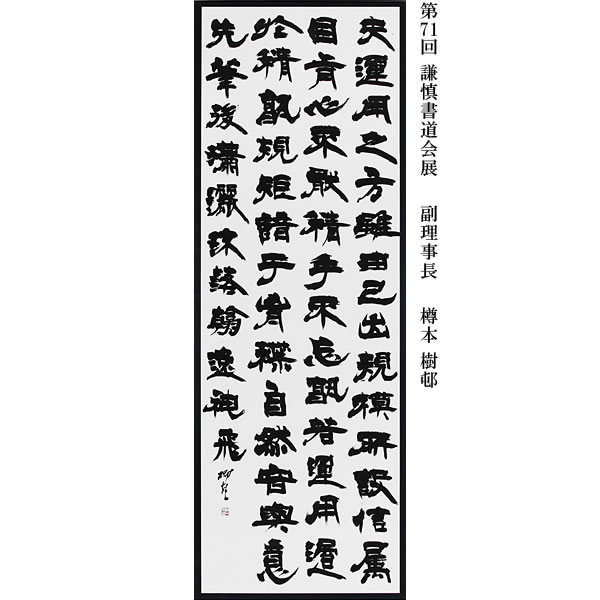 第71回 謙慎書道会展 副理事長 樽本 樹邨
夫運用之方雖由己出規模所設信属
目前心不厭精手不忘熟若運用盡
於精熟規矩諳于胷襟自然容與意
先筆後瀟灑流落翰逸神飛